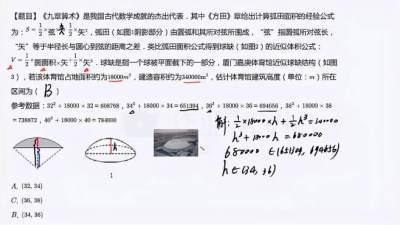 【题目】《九章算术》是我国古代数学成就的杰出代表，其中《方田》章给出计算弧田面积的经验公
式为：S = 1/2（弦×矢+矢²），弧田（如图1阴影部分）由圆弧和其所对弦所围成，“弦”指圆弧所对弦长，
“矢”等于半径长与圆心到弦的距离之差，类比弧田面积公式得到球缺（如图2）的近似体积公式：
V = 1/2 圆面积×矢+1/2×矢³，球缺是指一个球被平面截下的一部分，厦门嘉庚体育馆近似球缺结构（如图
3），若该体育馆占地面积约为18000m²，建造容积约为340000m³，估计体育馆建筑高度（单位：m）所在
区间为（ B ）
参考数据：32³ + 18000 × 32 = 608768，34³ + 18000 × 34 = 651304，36³ + 18000 × 36 = 694656，38³ + 18000 × 38
= 738872，40³ + 18000 × 40 = 784000
解：1/2×18000×h + 1/2h³ = 340000
h³ + 18000h = 680000
680000 ∈ (651304, 694656)
h ∈ (34, 36)
h
1
A、(32, 34)
C、(36, 38)
B、(34, 36)